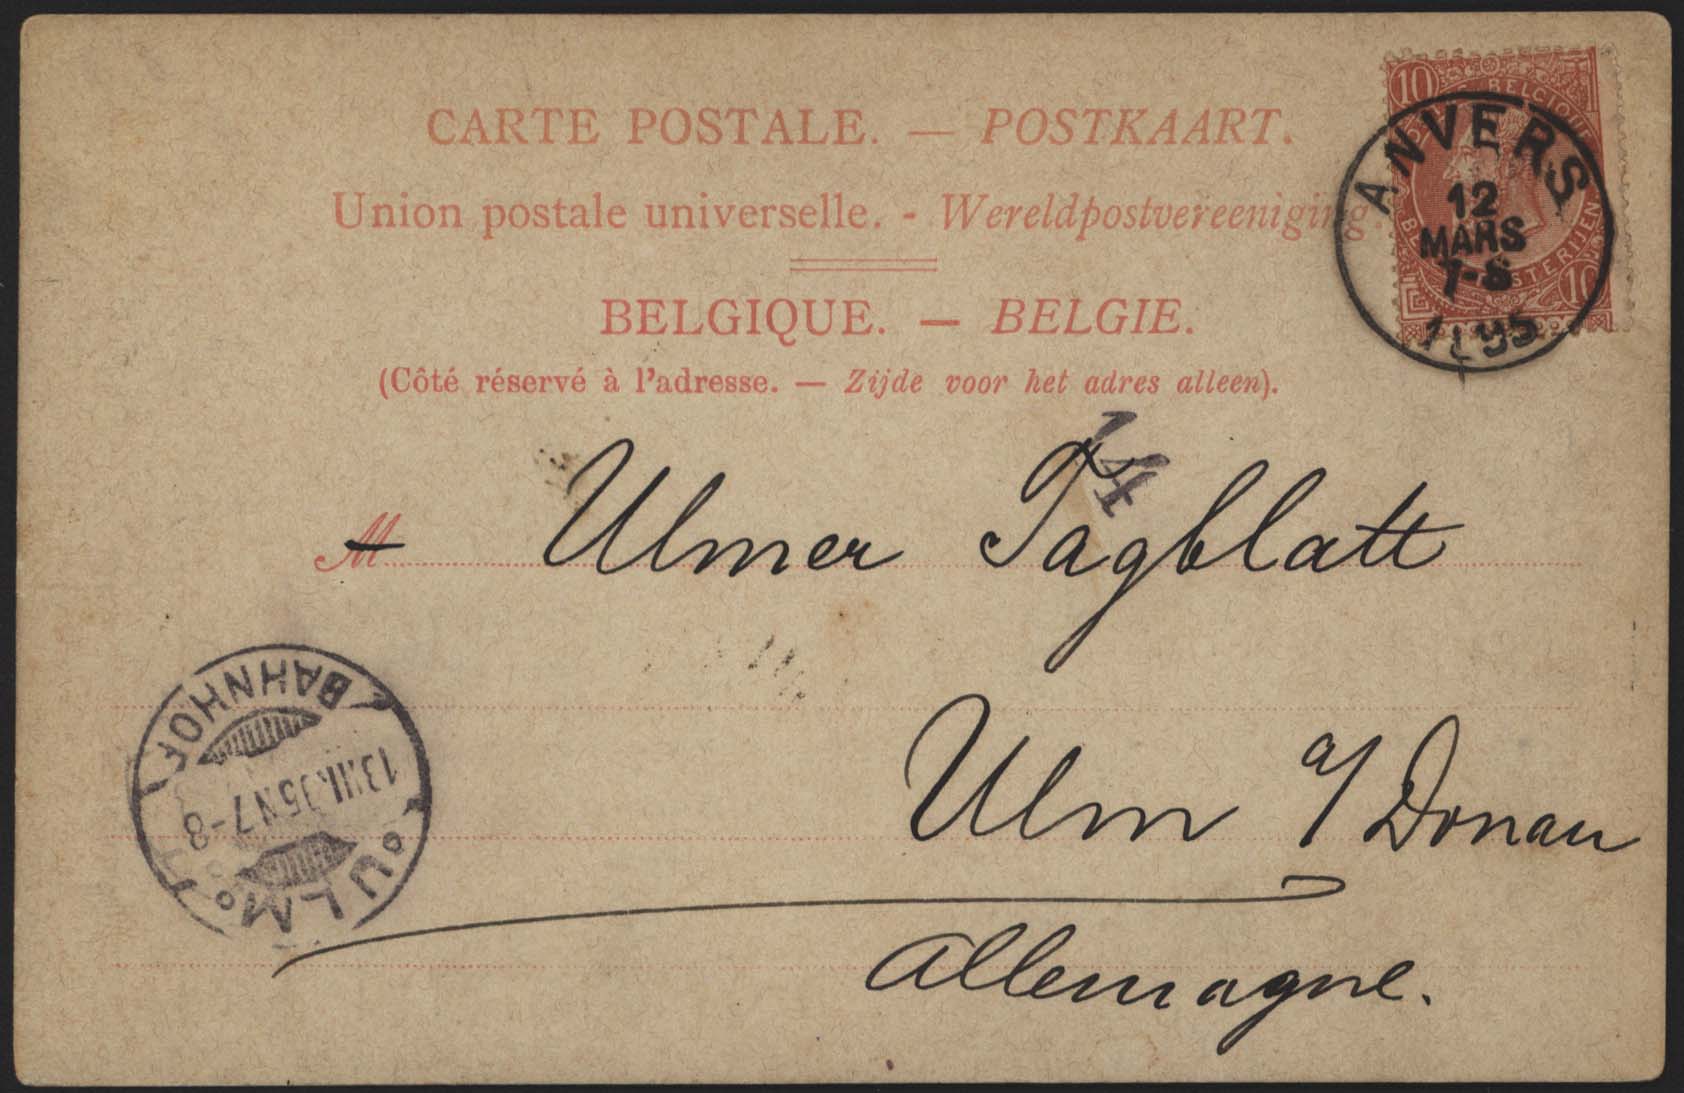 CARTE POSTALE. — POSTKAART.
Union postale universelle. - Wereldpostvereeniging.
BELGIQUE. — BELGIE.
(Côté réservé à l'adresse. — Zijde voor het adres alleen).
10 BELGIQUE
10
ANVERS
12
MARS
7-8
1895
14
M Ulmer Tagblatt
Ulm a/Donau
Allemagne.
BAHNHOF
13.III.95 N7-8
ULM